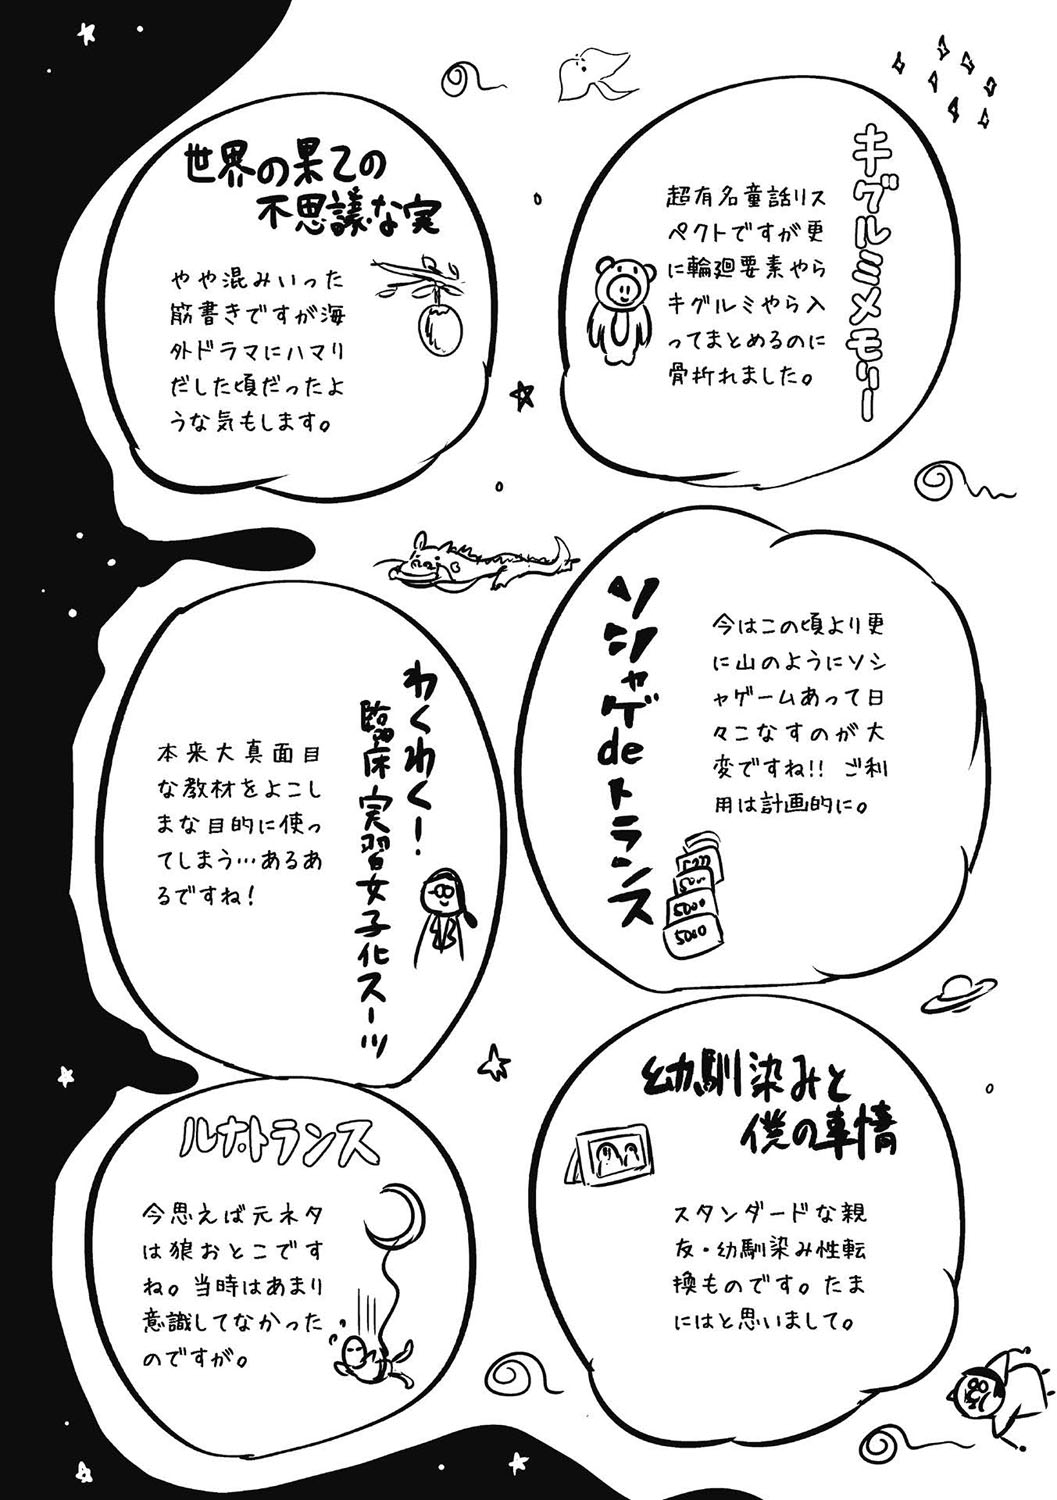 キグルミメモリー
超有名童話リス
ペクトですが更
に輪廻要素やら
キグルミやら入
ってまとめるのに
骨折れました。
世界の果ての
不思議な実
やや混みいった
筋書きですが海
外ドラマにハマり
だした頃だったよ
うな気もします。
ソシャゲdeトランス
今はこの頃より更
に山のようにソシ
ャゲームあって日
々こなすのが大
変ですね!! ご利
用は計画的に。
5000
5000
わくわく!
臨床実習女子化スーツ
本来大真面目
な教材をよこし
まな目的に使っ
てしまう…あるあ
るですね!
幼馴染みと
僕の事情
スタンダードな親
友・幼馴染み性転
換ものです。たま
にはと思いまして。
ルナトランス
今思えば元ネタ
は狼おとこです
ね。当時はあまり
意識してなかった
のですが。